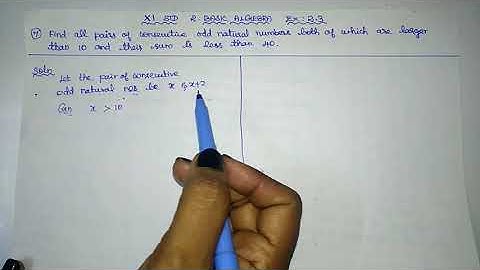 XI STD 2. BASIC ALGEBRA Ex: 2.3
7) Find all pairs of consecutive odd natural numbers both of which are larger
than 10 and their sum is less than 40.
Soln
Let the pair of consecutive
odd natural nos be x & x+2
Gn x > 10